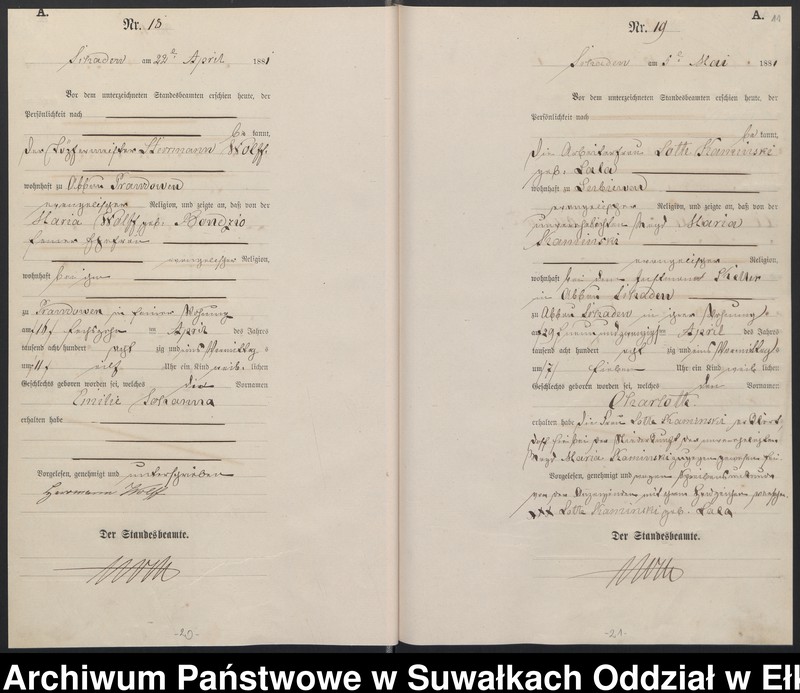 A.
Nr. 18
am 22ᵗ April 1881
Vor dem unterzeichneten Standesbeamten erschien heute, der
Persönlichkeit nach
be kannt,
der Töpfermeister Herrmann Wolff.
wohnhaft zu Abbau Prawdowen
evangelischer Religion, und zeigte an, daß von der
Maria Wolff geb.
seiner Ehefrau
evangelischer Religion,
wohnhaft bei ihm
zu Prawdowen in seiner Wohnung
am 16/ sechszehn ten April des Jahres
tausend acht hundert acht zig und eins Vormittag
um 11/ elf Uhr ein Kind weib lichen
Geschlechts geboren worden sei, welches die Vornamen
Emilie Johanna
erhalten habe
Vorgelesen, genehmigt und unterschrieben
Herrmann Wolff
Der Standesbeamte.
-20-
A.
Nr. 19
am Mai 1881
Vor dem unterzeichneten Standesbeamten erschien heute, der
Persönlichkeit nach
be kannt,
die Arbeiterfrau Lotte Kaminski
geb. Lala
wohnhaft zu
evangelischer Religion, und zeigte an, daß von der
unverehelichten Magd Maria
Kaminski
evangelischer Religion,
wohnhaft bei dem
in Abbau
zu Abbau in ihrer Wohnung
am 29/ neunundzwanzigsten April des Jahres
tausend acht hundert acht zig und eins Vormittags
um /7/ sieben Uhr ein Kind weib lichen
Geschlechts geboren worden sei, welches den Vornamen
Charlotte.
erhalten habe die Frau Lotte Kaminski erklärt,
daß sie bei der Niederkunft der unverehelichten
Magd Maria Kaminski zugegen gewesen sei.
Vorgelesen, genehmigt und wegen Schreibensunkunde
von der mit ihrem Handzeichen versehen.
XXX Lotte Kaminski geb. Lala
Der Standesbeamte.
-21-
Archiwum Państwowe w Suwałkach Oddział w Ełk